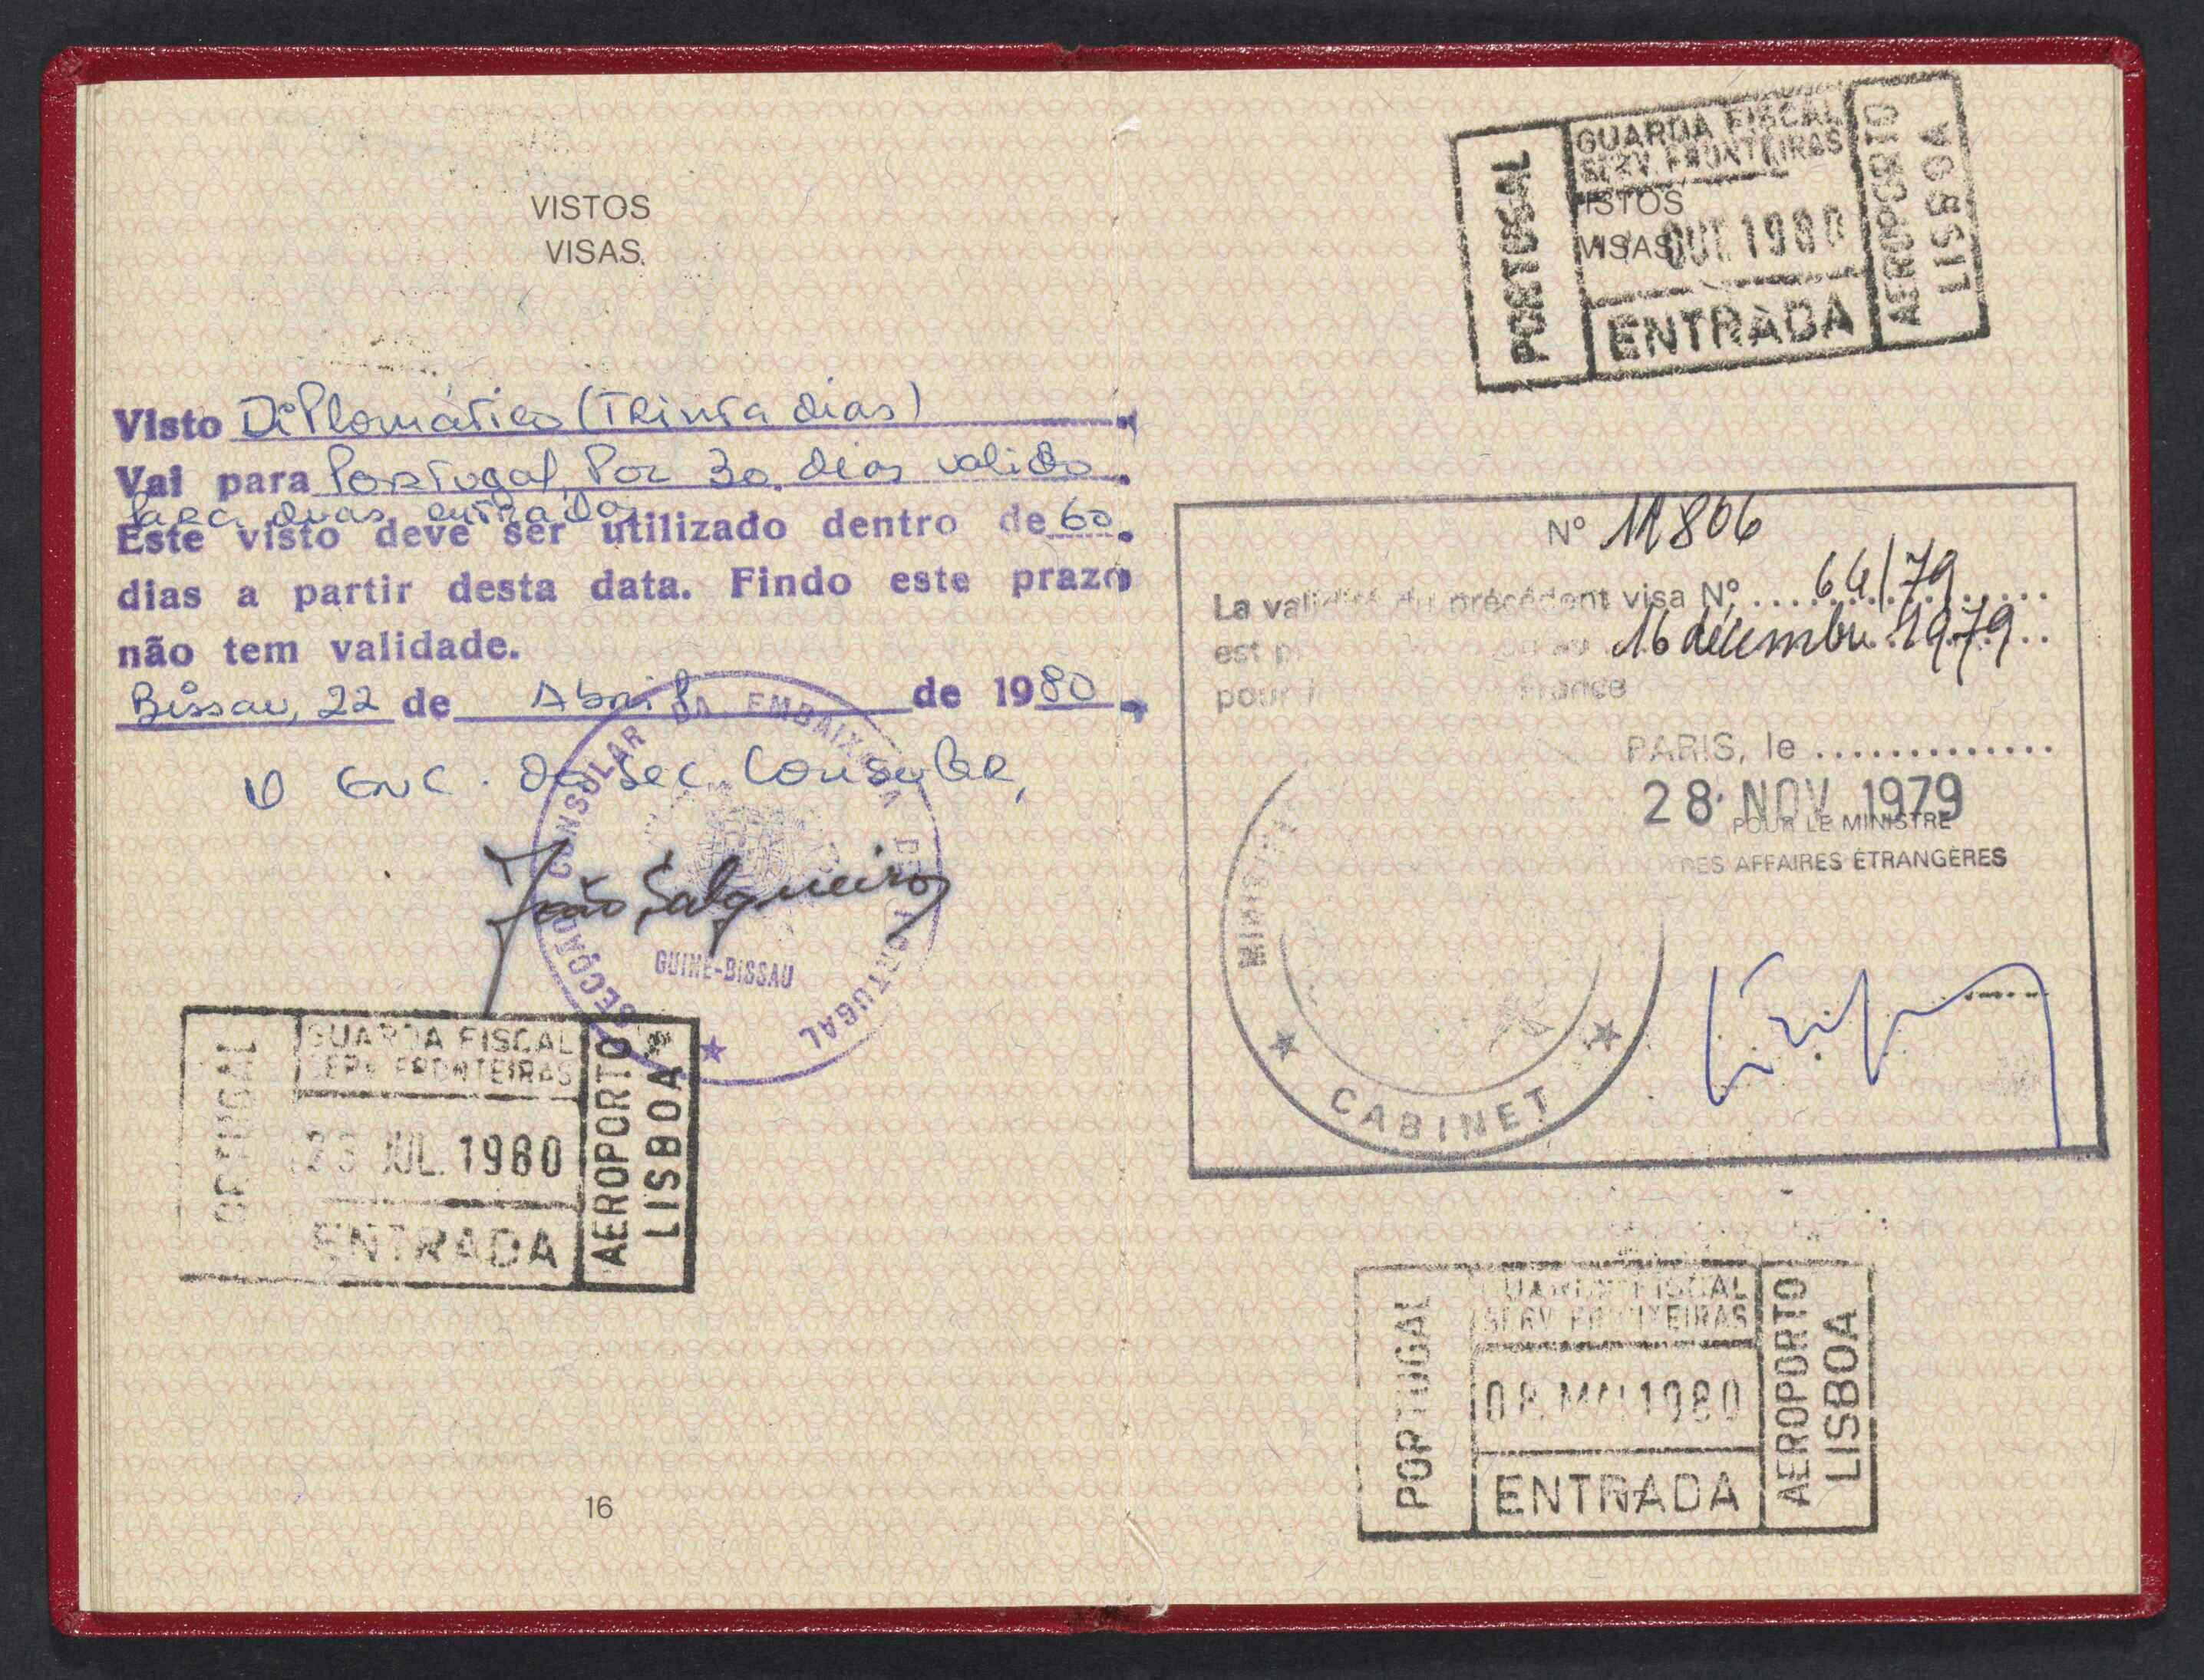 VISTOS
VISAS.
Visto Diplomático (Trinta dias)
Vai para Portugal, Por 30. dias valido
Para duas entradas
Este visto deve ser utilizado dentro de 60
dias a partir desta data. Findo este prazo
não tem validade.
Bissau, 22 de Abril de 1980
O Enc. da Sec. Consular,
João Salgueiro
SECÇÃO CONSULAR DA EMBAIXADA DE PORTUGAL
GUINÉ-BISSAU
PORTUGAL
GUARDA FISCAL
SERV. FRONTEIRAS
JUL. 1980
ENTRADA
AEROPORTO
LISBOA
16
PORTUGAL
GUARDA FISCAL
SERV. FRONTEIRAS
VISTOS
VISAS
OUT. 1980
ENTRADA
AEROPORTO
LISBOA
Nº 11806
La validité du précédent visa Nº 64/79
est au 16 décembre 1979
pour France
PARIS, le
28 NOV. 1979
POUR LE MINISTRE
DES AFFAIRES ÉTRANGÈRES
CABINET
PORTUGAL
GUARDA FISCAL
SERV. FRONTEIRAS
08. MAI 1980
ENTRADA
AEROPORTO
LISBOA